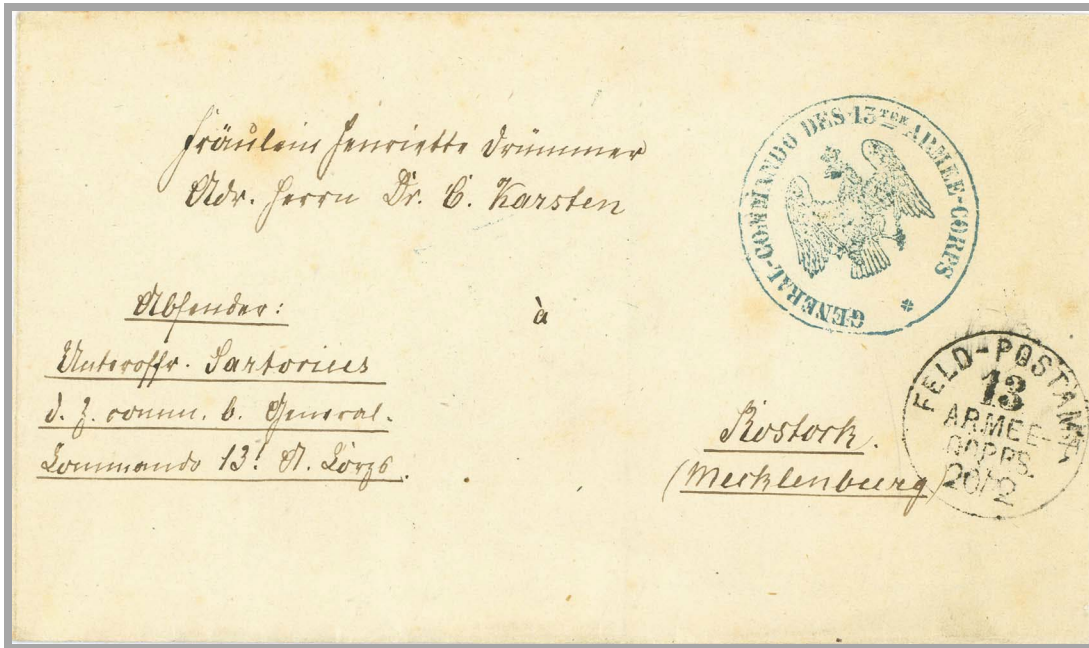 Fräulein Henriette Drümmer
Adr. Herrn Dr. C. Karsten
GENERAL-COMMANDO DES 13TEN ARMEE-CORPS
Absender:
à
Unteroffr. Sartorius
d. Z. comm. b. General-
Commando 13t. A. Corps.
Rostock.
(Mecklenburg)
FELD-POSTAMT
13
ARMEE
CORPS.
20/2